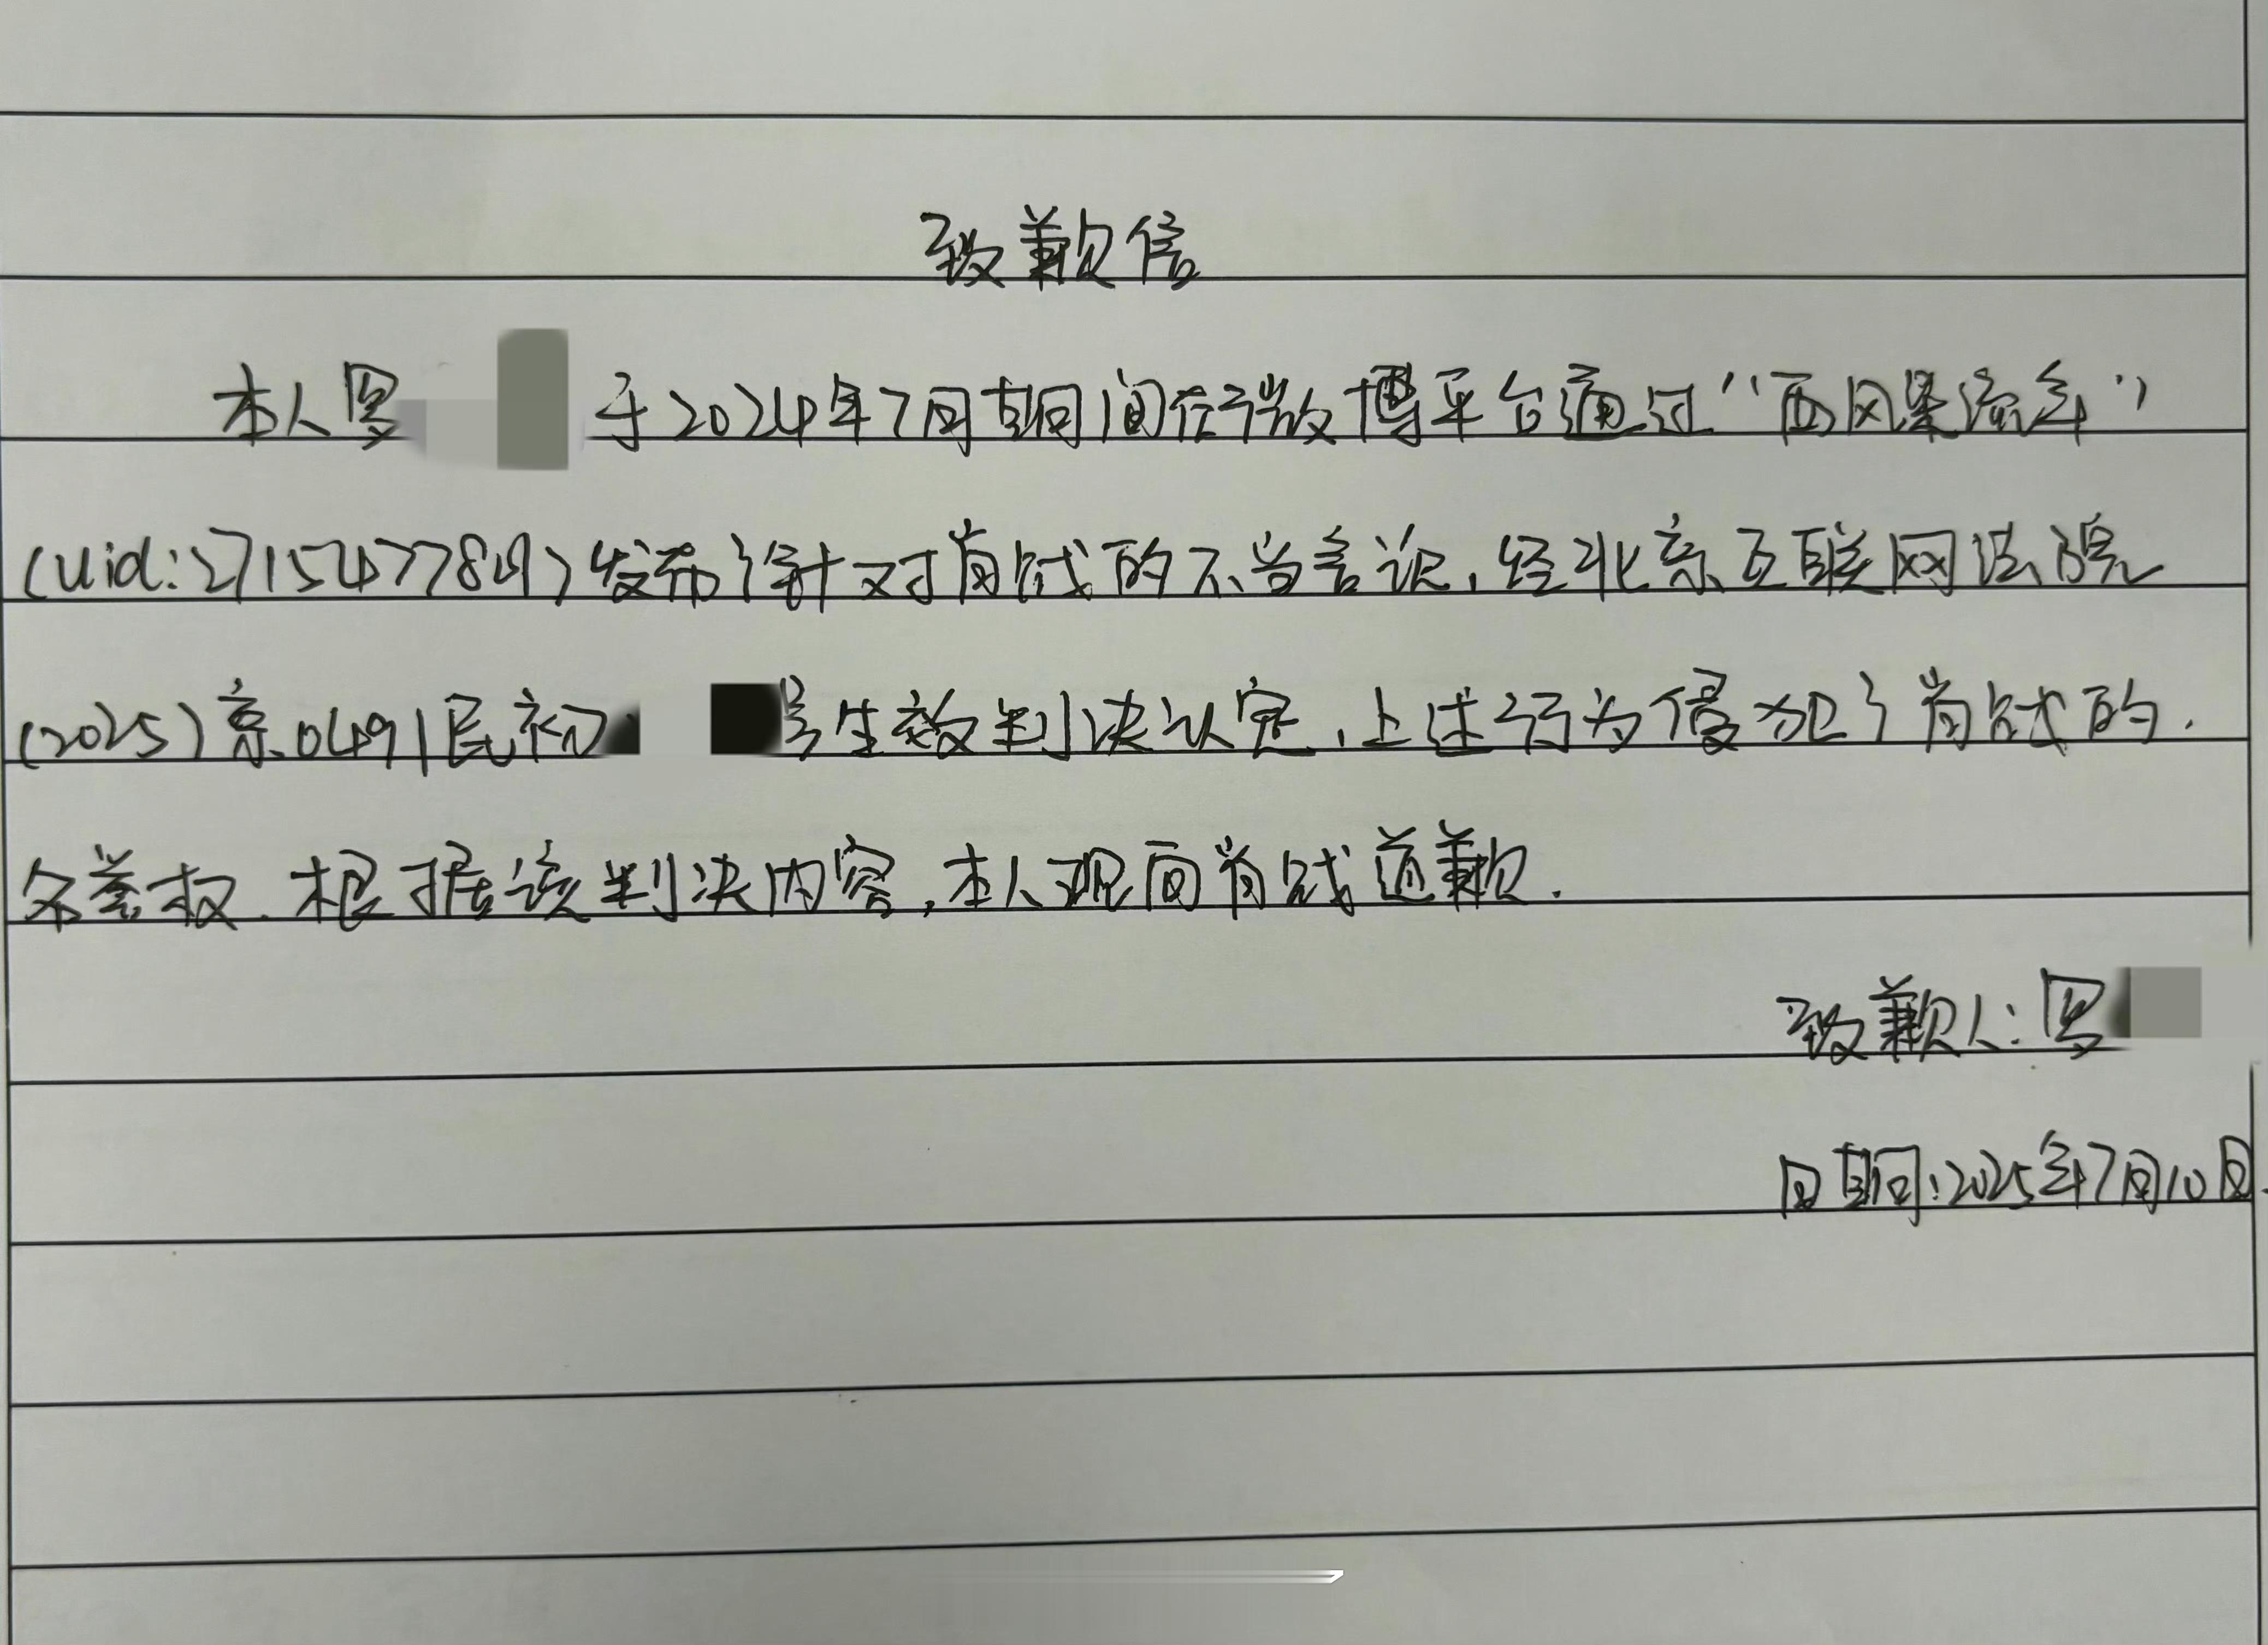 致歉信
本人罗 于2024年7月期间在微博平台通过“西风染流年”
(uid:2715477849)发布针对肖战的不当言论,经北京互联网法院
(2025)京0491民初 号生效判决认定,上述行为侵犯了肖战的.
名誉权.根据该判决内容,本人现向肖战道歉.
致歉人:罗
日期:2025年7月10日.